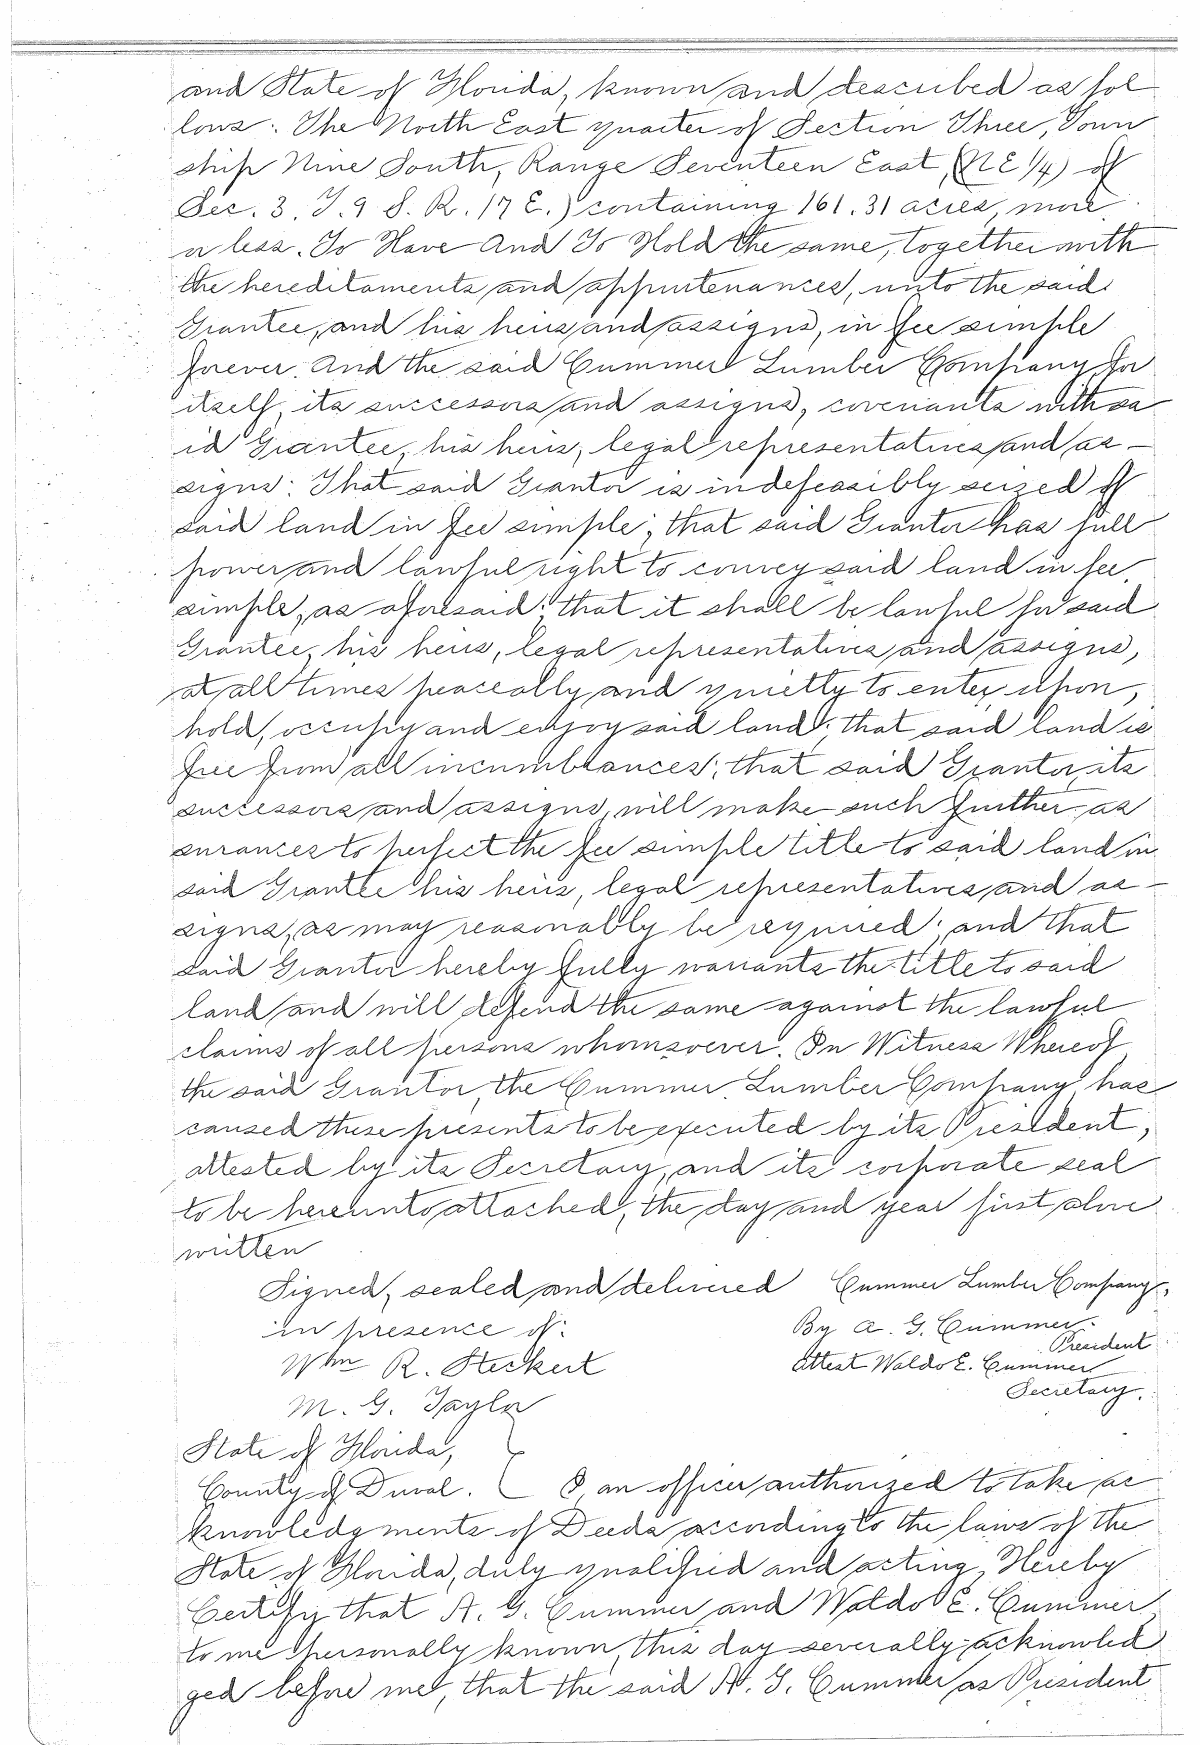 and State of Florida, known and described as fol
lows: The North East quarter of Section Three, Town
ship Nine South, Range Seventeen East, (NE 1/4) of
Sec. 3. T. 9 S. R. 17 E.) containing 161.31 acres, more
or less. To Have And To Hold the same, together with
the hereditaments and appurtenances, unto the said
Grantee, and his heirs and assigns, in fee simple
forever. And the said Cummer Lumber Company for
itself, its successors and assigns, covenants with sa
id Grantee, his heirs, legal representatives and as-
signs: That said Grantor is indefeasibly seized of
said land in fee simple; that said Grantor has full
power and lawful right to convey said land in fee
simple, as aforesaid; that it shall be lawful for said
Grantee, his heirs, legal representatives and assigns,
at all times peaceably and quietly to enter upon,
hold, occupy and enjoy said land; that said land is
free from all incumbrances; that said Grantor, its
successors and assigns, will make such further as
surances to perfect the fee simple title to said land in
said Grantee his heirs, legal representatives and as-
signs, as may reasonably be required; and that
said Grantor hereby fully warrants the title to said
land and will defend the same against the lawful
claims of all persons whomsoever. In Witness Whereof
the said Grantor, the Cummer Lumber Company, has
caused these presents to be executed by its President,
attested by its Secretary, and its corporate seal
to be hereunto attached, the day and year first above
written
Signed, sealed and delivered Cummer Lumber Company,
in presence of: By A. G. Cummer.
President
Wm R. Steckert Attest Waldo E. Cummer
Secretary.
M. G. Taylor
State of Florida,
County of Duval. I, an officer authorized to take ac
knowledgments of Deeds according to the laws of the
State of Florida, duly qualified and acting, Hereby
Certify that A. G. Cummer and Waldo E. Cummer
to me personally known, this day severally acknowled
ged before me, that the said A. G. Cummer as President